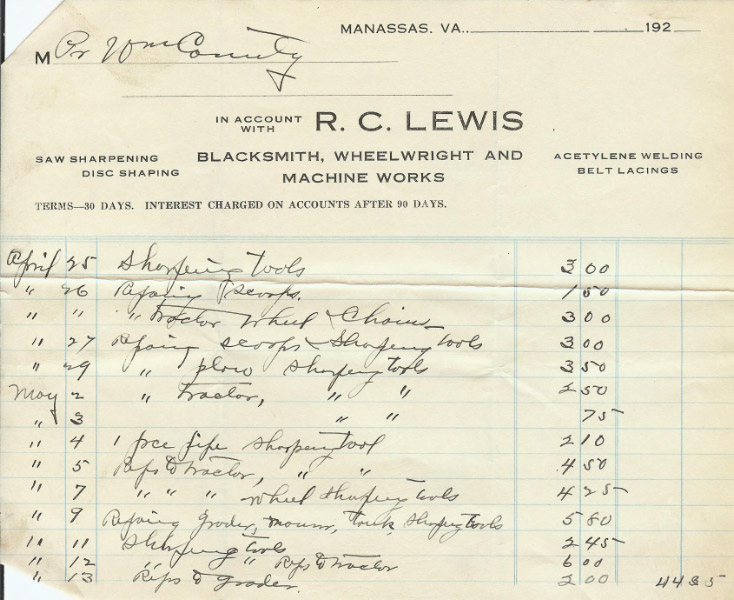 MANASSAS, VA. 192
M Pr Wm County
IN ACCOUNT WITH R. C. LEWIS
SAW SHARPENING
DISC SHAPING
BLACKSMITH, WHEELWRIGHT AND
MACHINE WORKS
ACETYLENE WELDING
BELT LACINGS
TERMS—30 DAYS. INTEREST CHARGED ON ACCOUNTS AFTER 90 DAYS.
April 25 Sharpening tools 3 00
" 26 Repairing scoops. 1 50
" " " Tractor wheel & Chains 3 00
" 27 Repairing scoops & Sharpening tools 3 00
" 29 " plow sharpening tools 3 50
May 2 " tractor, " " 2 50
" 3 " " 75
" 4 1 pce pipe sharpening tool 2 10
" 5 Reps to tractor, " " 4 50
" 7 " " " wheel sharpening tools 4 25
" 9 Repairing grader, tank, sharping tools 5 80
" 11 Sharpening tools 2 45
" 12 " " Reps to tractor 6 00
" 13 Reps to grader. 2 00 44 35